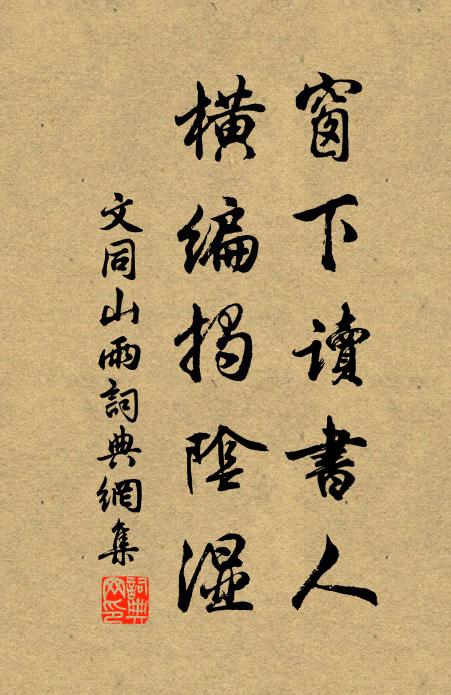 窗下讀書人
橫編揭陰湿
文同山雨詞典網集
詞典网印